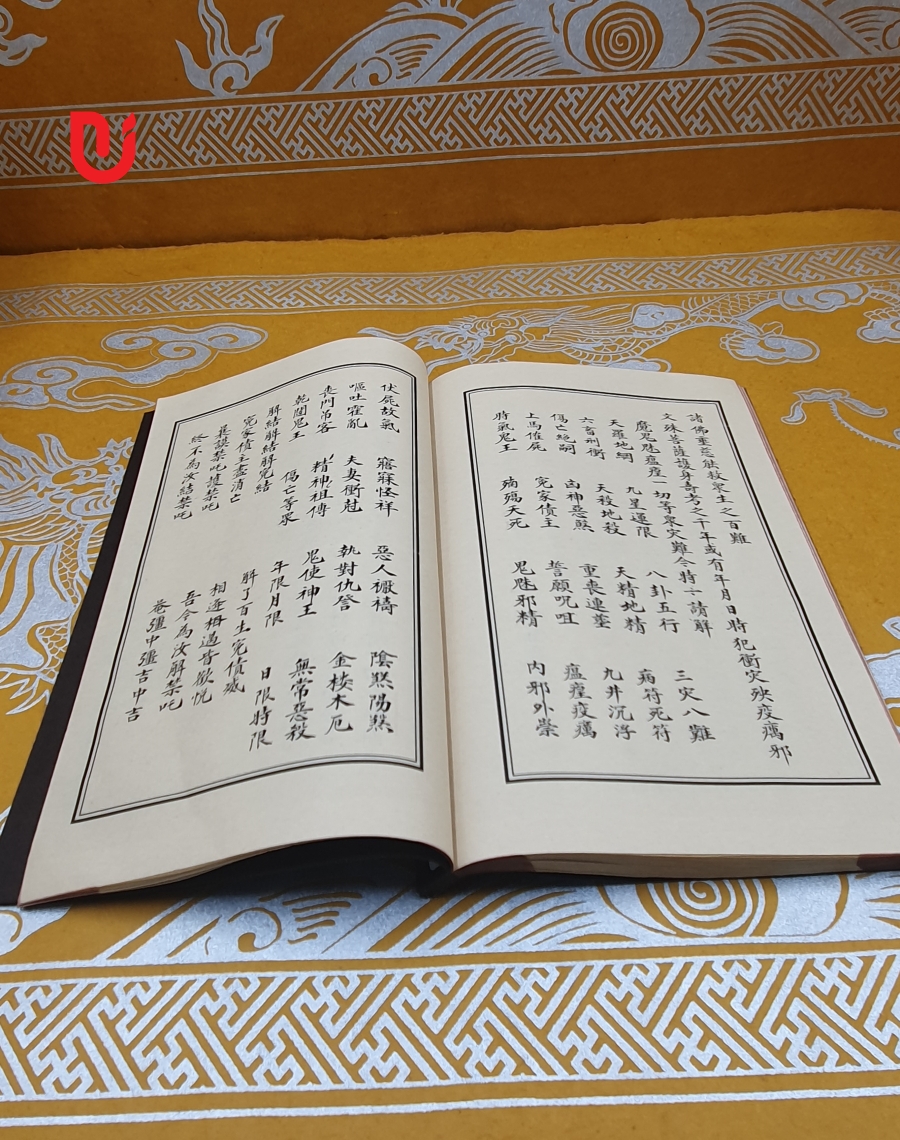 諸佛垂慈能救衆生之百難
文殊菩薩護身寄考之千年或有年月日時犯衝灾殃疫癘邪
魔鬼魅瘟瘟一切等衆灾難今特一請解
天羅地網 九星運限 八卦五行 三灾八難
六畜刑衝 天殺地殺 天精地精 病符死符
傷亡絕嗣 凶神惡煞 重喪連塟 九井沉浮
上馬催屍 冤家債主 誓願呪咀 瘟瘟疫癘
時氣鬼王 殀殤夭死 鬼魅邪精 內邪外祟
伏屍故氣 寤寐怪祥 惡人禳禱 陰煞陽煞
嘔吐霍亂 夫妻衝尅 執對仇讐 金楼木厄
喪門吊客 精神祖傳 鬼使神王 無常惡殺
乾闥鬼王 傷亡等衆 年限月限 日限時限
解結解結解冤結 解了百生冤債滅
冤家債主盡消亡 相逢相遇皆歡悅
謨禁吃護禁吃 吾今為汝解禁吃
終不為汝結禁吃 菴彊中彊吉中吉